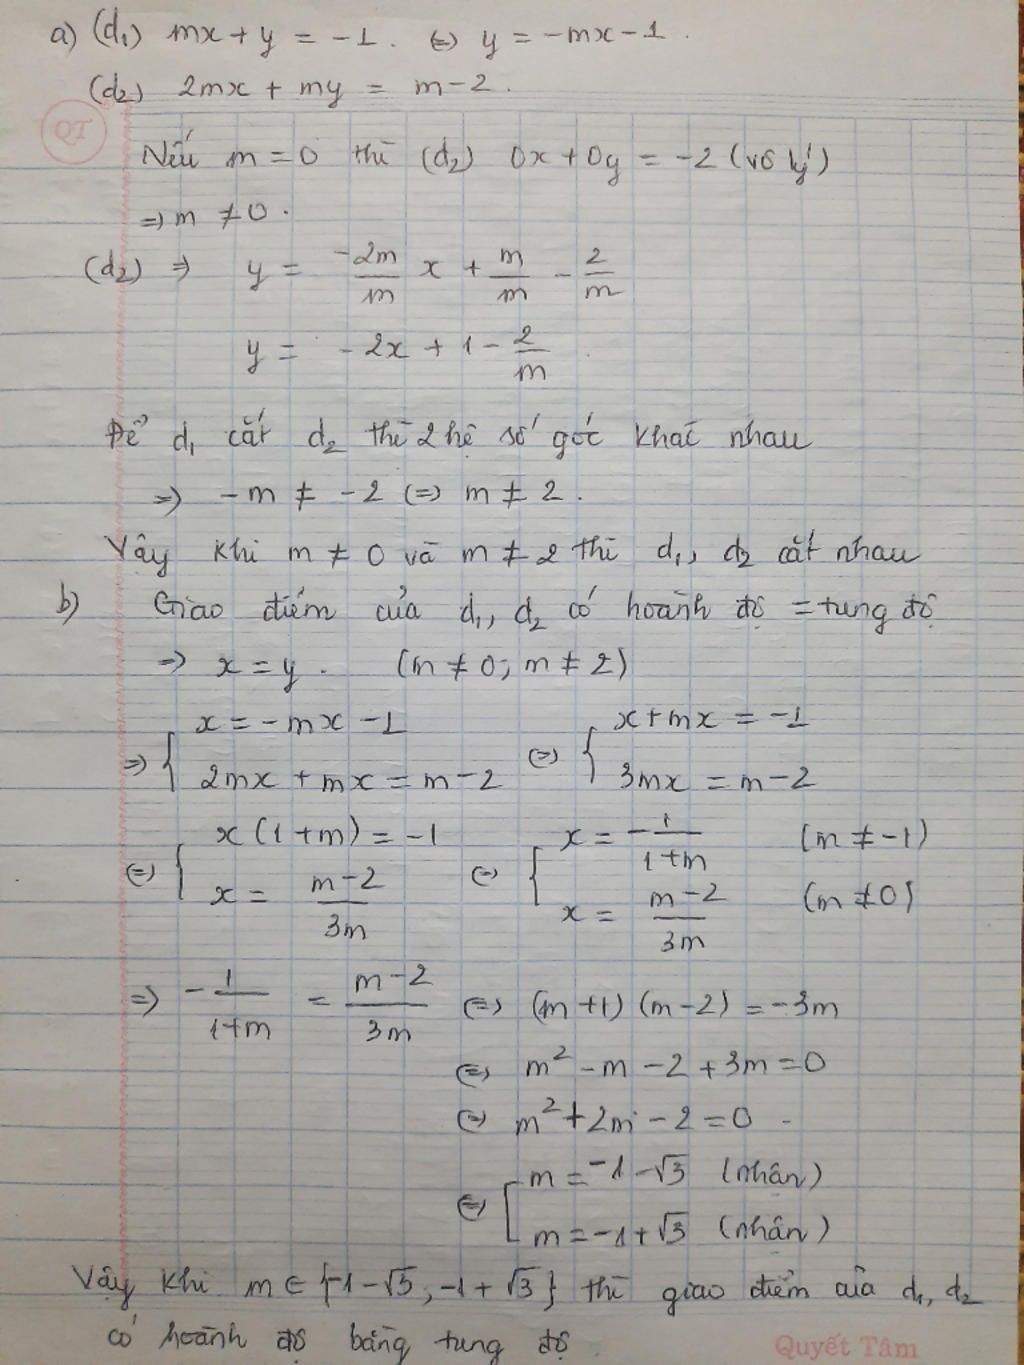 a) (d₁) mx + y = -1. ⇔ y = -mx - 1.
(d₂) 2mx + my = m - 2.
QT
Nếu m = 0 thì (d₂) 0x + 0y = -2 (vô lý)
⇒ m ≠ 0.
(d₂) ⇒ y = -2m/m x + m/m - 2/m
y = -2x + 1 - 2/m
Để d₁ cắt d₂ thì 2 hệ số góc khác nhau
⇒ -m ≠ -2 ⇔ m ≠ 2.
Vậy khi m ≠ 0 và m ≠ 2 thì d₁, d₂ cắt nhau
b) Giao điểm của d₁, d₂ có hoành độ = tung độ
⇒ x = y. (m ≠ 0; m ≠ 2)
⇒ { x = -mx - 1 ⇔ { x + mx = -1
2mx + mx = m - 2 3mx = m - 2
⇔ { x(1+m) = -1 ⇔ { x = -1/(1+m) (m ≠ -1)
x = (m-2)/3m x = (m-2)/3m (m ≠ 0)
⇒ -1/(1+m) = (m-2)/3m ⇔ (m+1)(m-2) = -3m
⇔ m² - m - 2 + 3m = 0
⇔ m² + 2m - 2 = 0
⇔ [ m = -1 - √3 (nhân)
m = -1 + √3 (nhân)
Vậy khi m ∈ {-1 - √3, -1 + √3} thì giao điểm của d₁, d₂
có hoành độ bằng tung độ.
Quyết Tâm